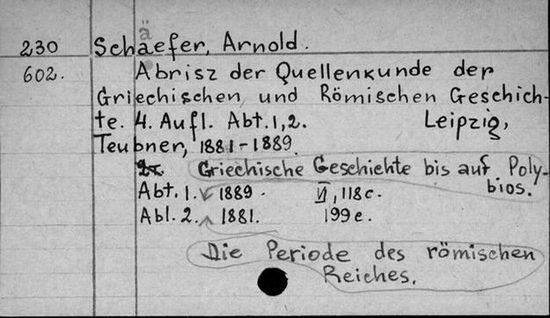 ä
230 Schaefer, Arnold.
602. Abrisz der Quellenkunde der
Griechischen und Römischen Geschich-
te. 4. Aufl. Abt. 1, 2. Leipzig,
Teubner, 1881-1889.
Griechische Geschichte bis auf Poly-
bios.
Abt. 1. 1889. VI, 118 c.
Abl. 2. 1881. 199 e.
Die Periode des römischen
Reiches.